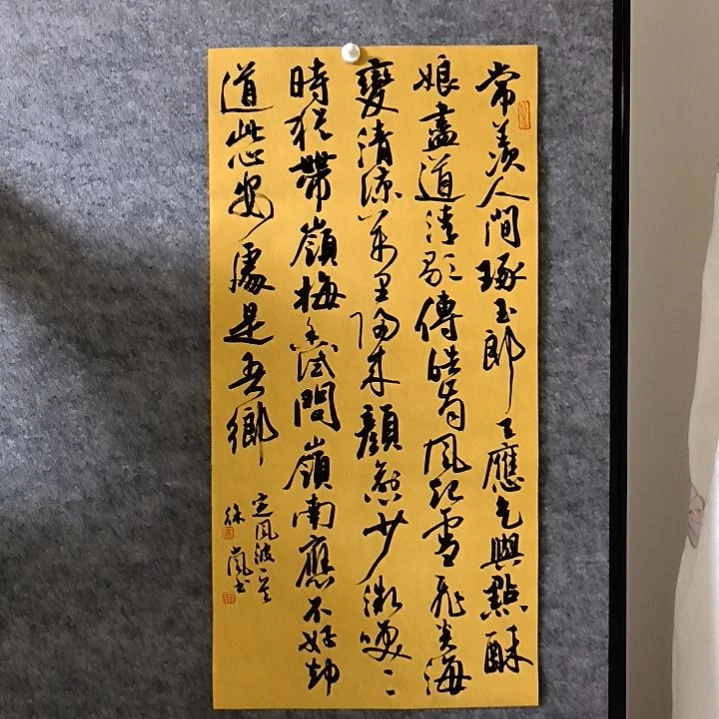 常羡人間琢玉郎天應乞與點酥
娘盡道清歌傳皓齒風起雪飛炎海
變清涼萬里歸來顏愈少微笑〻
時猶帶嶺梅香試問嶺南應不好却
道此心安處是吾鄉
定風波一首
徐嵐書